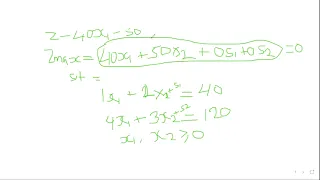 Z - 40x₁ - 50
Zmax = 40x₁ + 50x₂ + 0s₁ + 0s₂ = 0
st =
1x₁ + 2x₂ + s = 40
4x₁ + 3x₂ + s2 = 120
x₁, x₂ ≥ 0